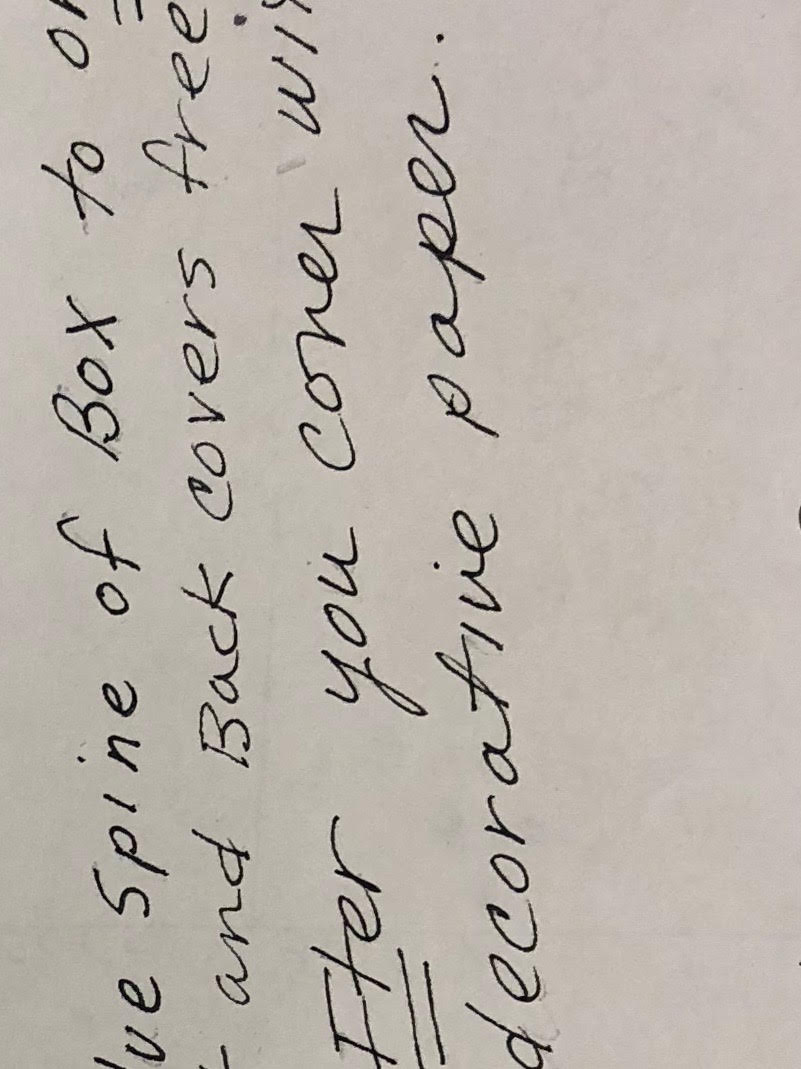 lue Spine of Box to on
t and Back covers free
Fter you cover wi
decorative paper.